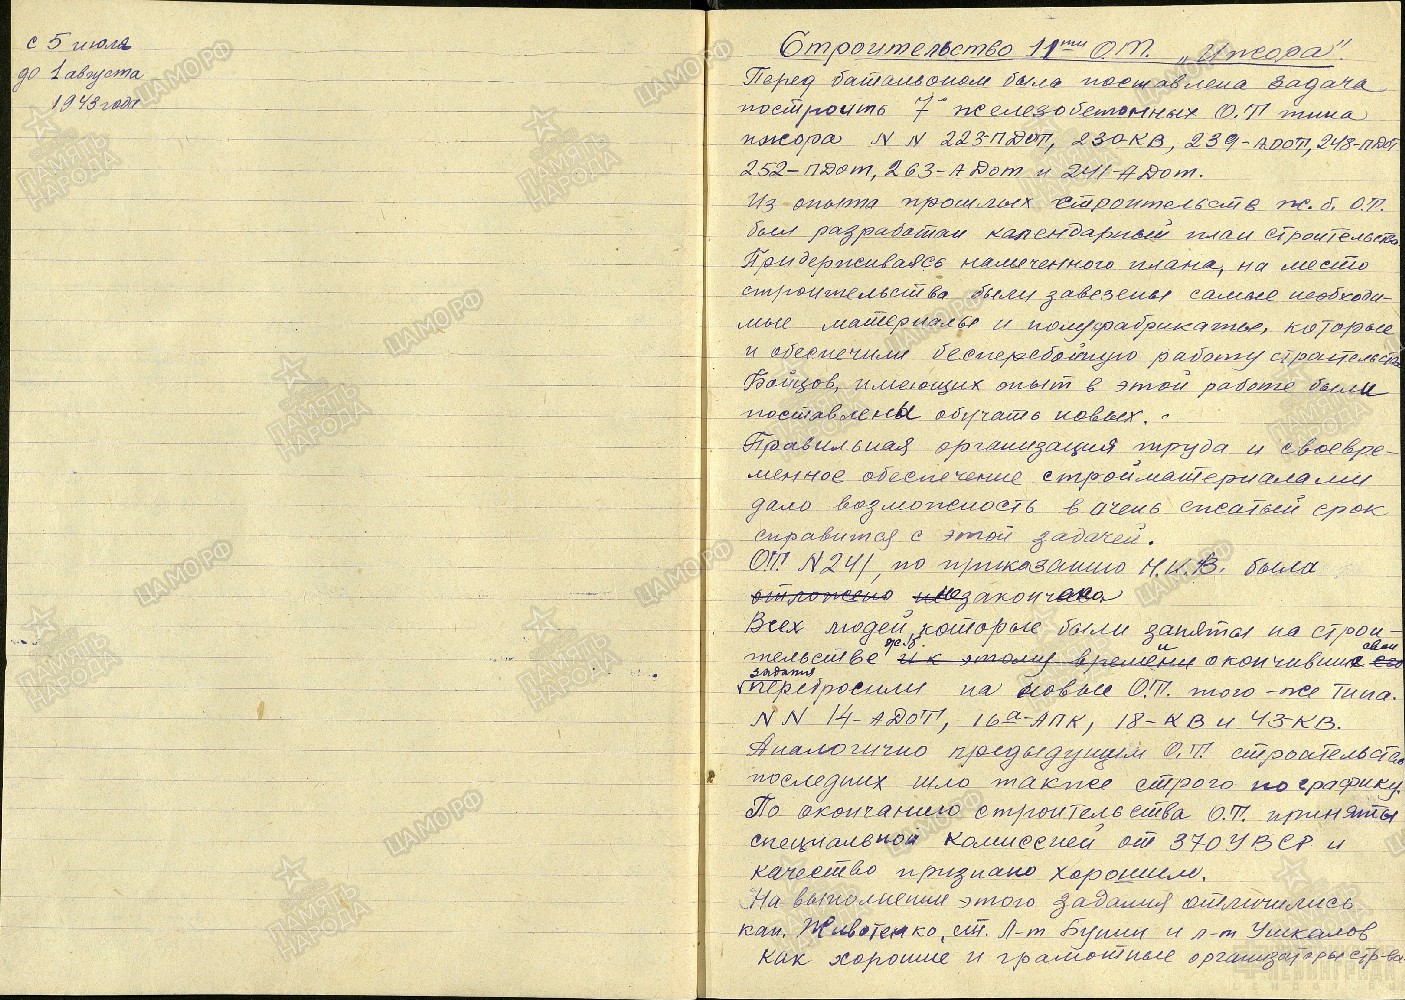 с 5 июля
до 1 августа
1943 года
Строительство 11ти О.Т. „Ижора".
Перед батальоном была поставлена задача
построить 7 железобетонных О.Т типа
ижора N N 223-ПДОТ, 230-КВ, 239-АДОТ, 248-ПДОТ
252-ПДот, 263-АДот и 241-АДот.
Из опыта прошлых строительств ж.б. О.Т.
был разработан календарный план строительства
Придерживаясь намеченного плана, на место
строительства были завезены самые необходи-
мые материалы и полуфабрикаты, которые
и обеспечили бесперебойную работу строительства
Бойцов, имеющих опыт в этой работе были
поставлены обучать новых.
Правильная организация труда и своевре-
менное обеспечение стройматериалами
дало возможность в очень сжатый срок
справится с этой задачей.
ОТ N 241, по приказанию Н.И.В. была
отложено не закончена
Всех людей, которые были заняты на строи-
тельстве ж.б. и к этому времени окончившие свои
задания перебросили на новые О.Т. того-же типа.
N N 14-АДОТ, 16а-АПК, 18-КВ и 43-КВ.
Аналогично предыдущим О.Т. строительство
последних шло также строго по графику.
По окончанию строительства О.Т. приняты
специальной комиссией от 370 УВСР и
качество признано хорошим.
На выполнении этого задания отличились
кап. Животенко, ст. Л-т Бушин и л-т Ушкалов
как хорошие и грамотные организаторы стр-ва